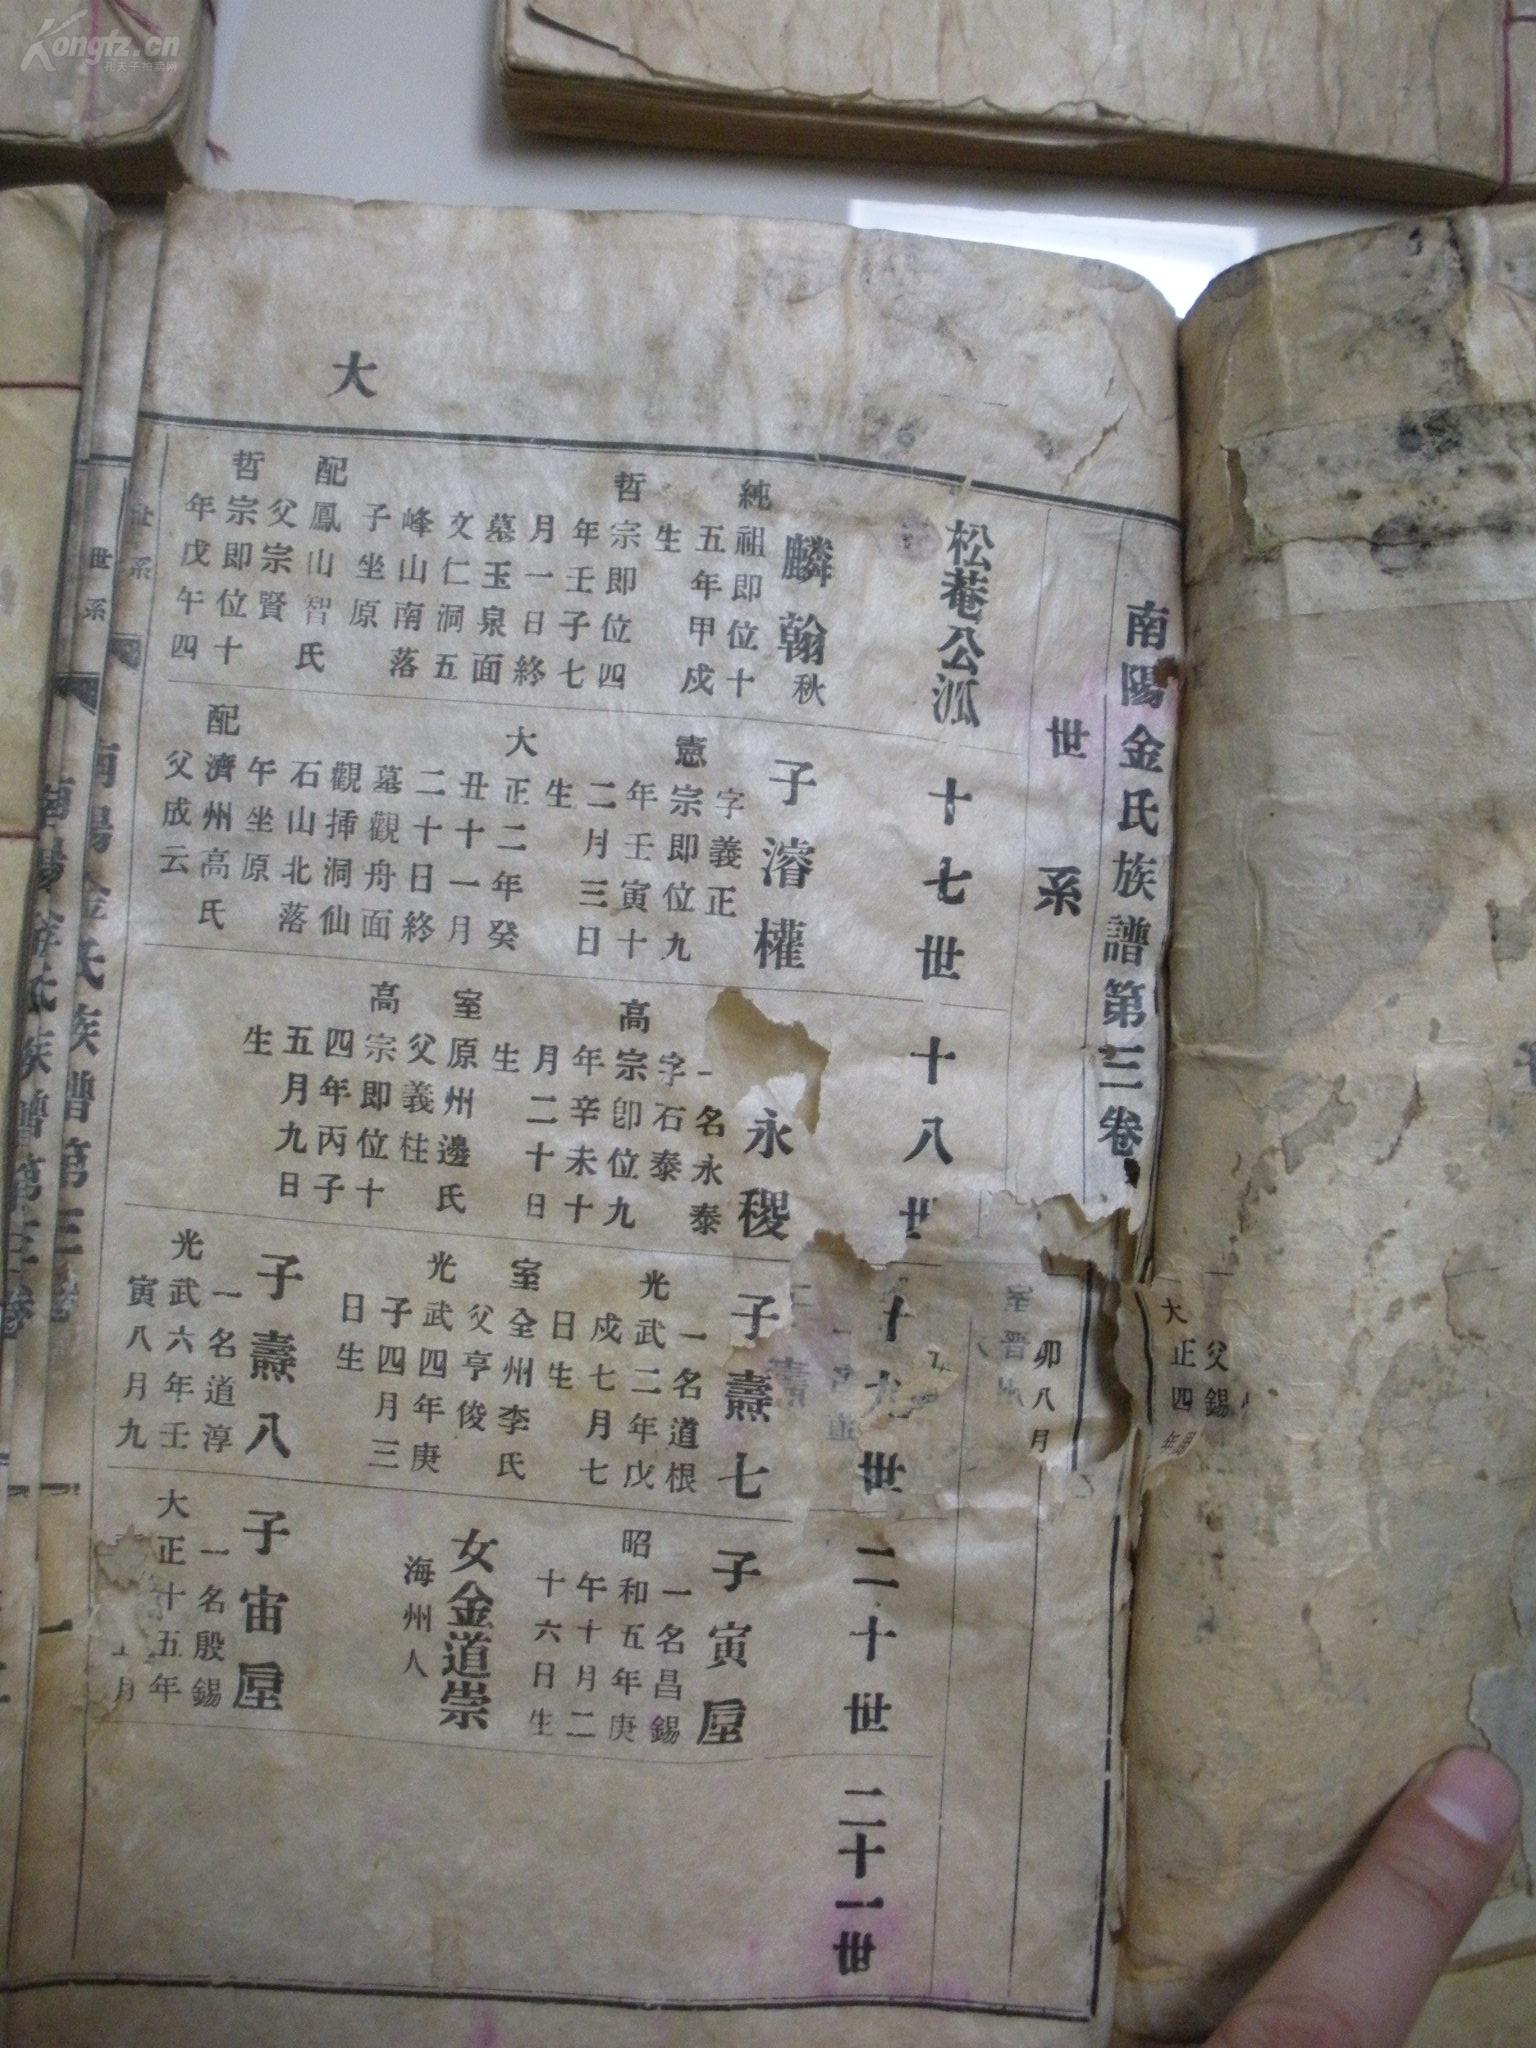 Kongfz.cn
孔夫子拍卖网
大
南陽金氏族譜第三卷
世系
松菴公泒
十七世
十八世
十九世
二十世
二十一世
麟翰
秋
純祖即位十
五年甲戍
生
哲宗即位四
年壬子七
月一日終
墓玉泉面
文仁洞五
峰山南落
子坐原
配鳳山智氏
父宗賢
哲宗即位十
年戊午四
子濬權
字義正
憲宗即位九
年壬寅十
二月三日
生
大正二年癸
丑十一月
二十日終
墓觀舟面
觀揷洞仙
石山北落
午坐原
配濟州高氏
父成云
永稷
一名永泰
字石泰
高宗卽位九
年辛未十
月二十日
生
室原州邊氏
父義柱
高宗即位十
四年丙子
五月九日
生
子燾七
一名道根
光武二年戊
戍七月七
日生
室全州李氏
父亨俊
光武四年庚
子四月三
日生
子燾八
一名道淳
光武六年壬
寅八月九
子寅垕
一名昌錫
昭和五年庚
午十月二
十六日生
女金道崇
海州人
子宙垕
一名殷錫
大正十五年
月
卯八月
室晋
父錫
大正四年
世系
世系
南陽金氏族譜第三卷
一
南陽金氏族譜第三卷